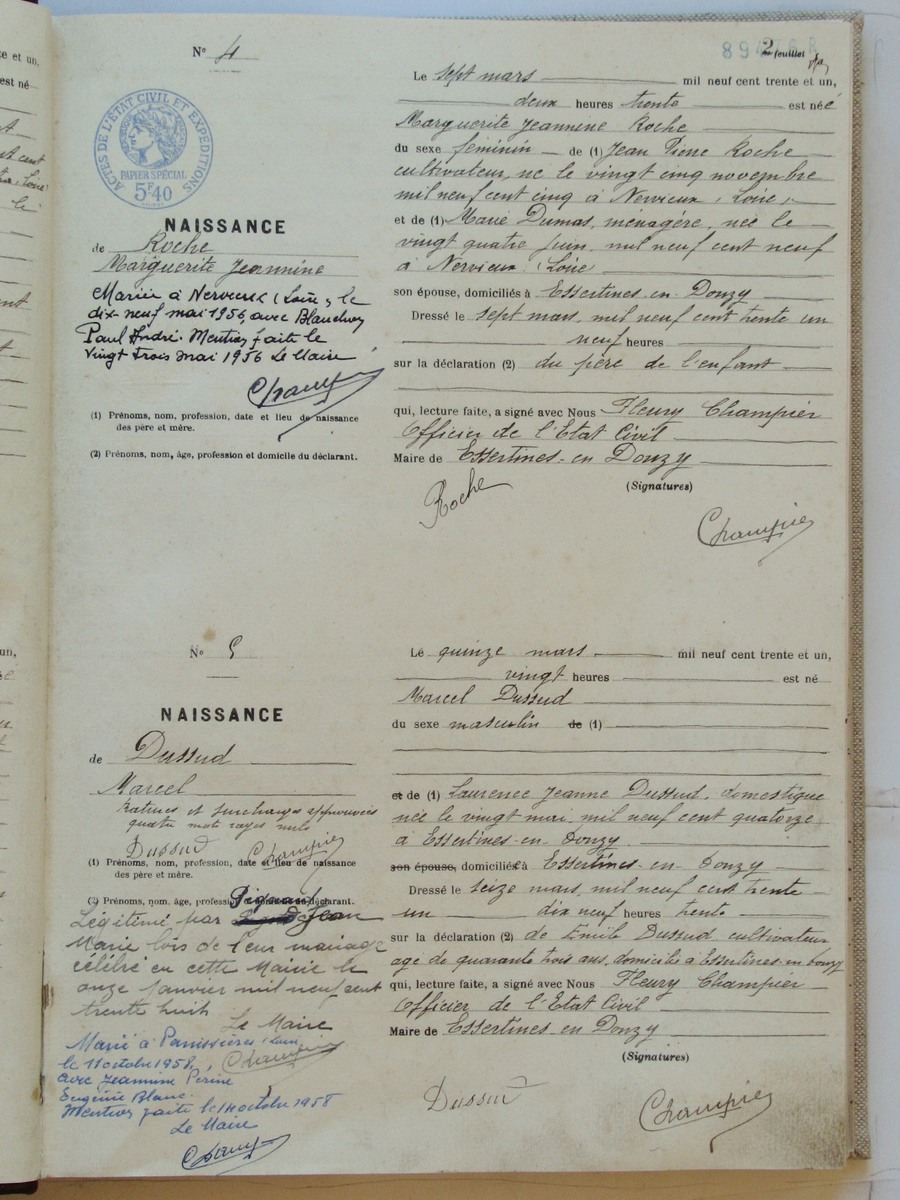 894 R
2me feuillet
N° 4
ACTES DE L'ÉTAT CIVIL ET EXPÉDITIONS
PAPIER SPÉCIAL
5F40
NAISSANCE
de Roche
Marguerite Jeannine
Mariée à Nervieux (Loire), le
dix-neuf mai 1956, avec
Paul André. Mention faite le
Vingt trois mai 1956 Le Maire
(1) Prénoms, nom, profession, date et lieu de naissance
des père et mère.
(2) Prénoms, nom, âge, profession et domicile du déclarant.
Le sept mars mil neuf cent trente et un,
deux heures trente est née
Marguerite Jeannine Roche
du sexe féminin de (1) Jean Pierre Roche
cultivateur, né le vingt cinq novembre
mil neuf cent cinq à Nervieux (Loire),
et de (1) Marie Dumas, ménagère, née le
vingt quatre juin mil neuf cent neuf
à Nervieux (Loire)
son épouse, domiciliés à Essertines-en-Donzy
Dressé le sept mars, mil neuf cent trente un
neuf heures
sur la déclaration (2) du père de l'enfant
qui, lecture faite, a signé avec Nous Fleury Champier
Officier de l'Etat Civil
Maire de Essertines-en Donzy
(Signatures)
Roche
Champier
N° 5
NAISSANCE
de Dussud
Marcel
ratures et surcharges approuvées
quatre mots rayés nuls
Dussud Champier
(1) Prénoms, nom, profession, date et lieu de naissance
des père et mère.
(2) Prénoms, nom, âge, profession déclarant.
Légitimé par Jean
Marie lors de leur mariage
célébré en cette Mairie le
onze janvier mil neuf cent
trente huit
Le Maire
Champier
Marié à Panissières (Loire)
le 11 octobre 1958,
avec Jeannine Périne
Eugénie Blanc.
Mention faite le 14 octobre 1958
Le Maire
Le quinze mars mil neuf cent trente et un,
vingt heures est né
Marcel Dussud
du sexe masculin de (1)
et de (1) Laurence Jeanne Dussud, domestique
née le vingt mai mil neuf cent quatorze
à Essertines-en-Donzy
son épouse, domiciliée à Essertines-en-Donzy
Dressé le seize mars, mil neuf cent trente
un dix neuf heures trente
sur la déclaration (2) de Emile Dussud cultivateur
agé de quarante trois ans, domicilié à Essertines-en-Donzy
qui, lecture faite, a signé avec Nous Fleury Champier
Officier de l'Etat Civil
Maire de Essertines en Donzy
(Signatures)
Dussud
Champier